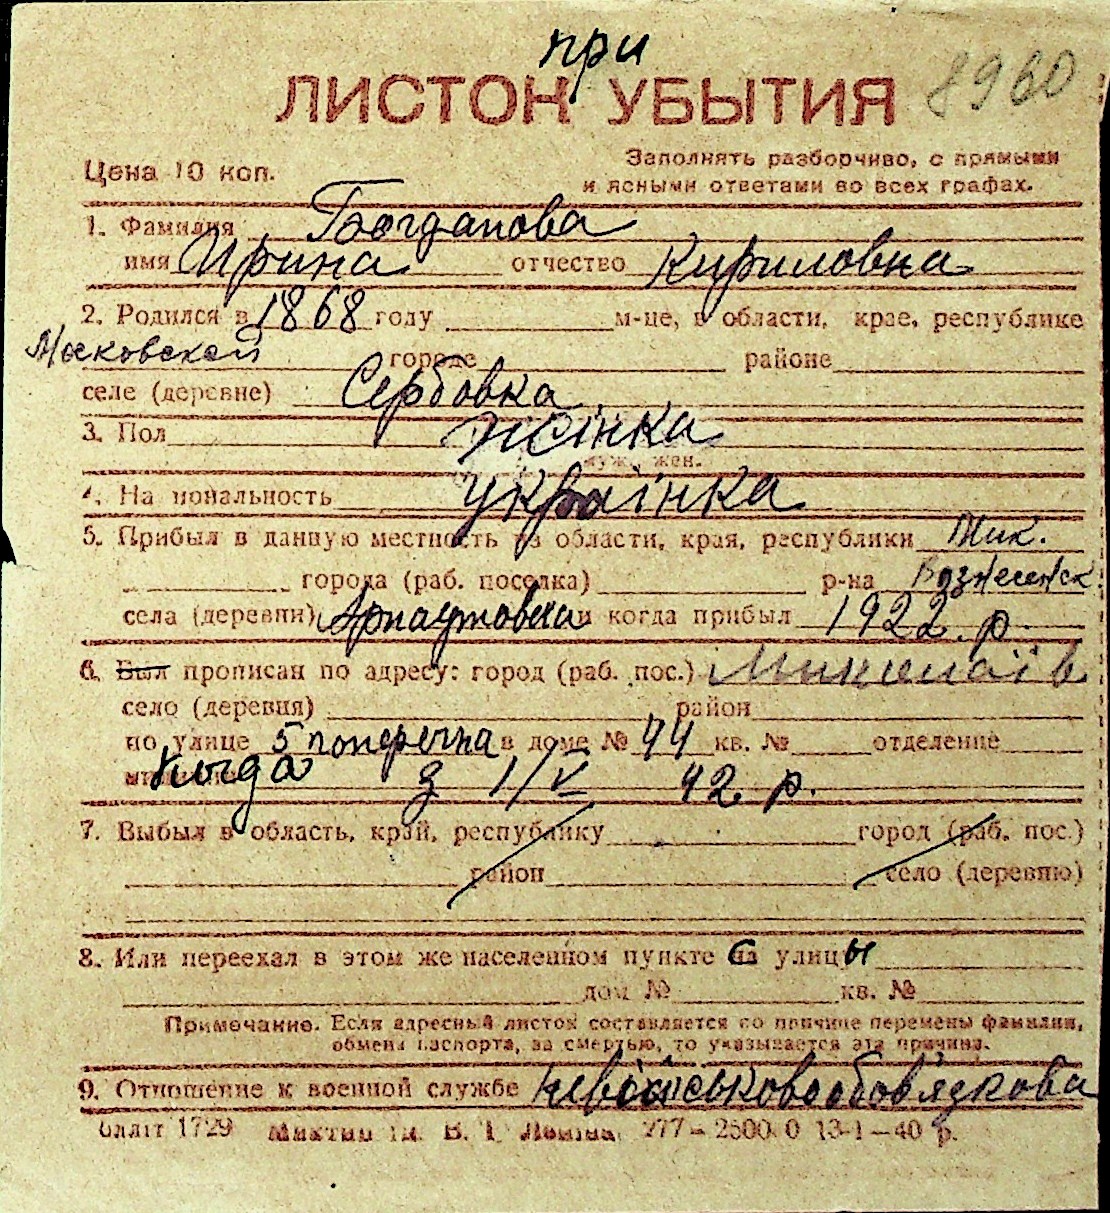 при
ЛИСТОК УБЫТИЯ 8960
Цена 10 коп.
Заполнять разборчиво, с прямыми
и ясными ответами во всех графах.
1. Фамилия Богданова
имя Ирина отчество Кириловна
2. Родился в 1868 году м-це, в области, крае, республике
Московской городе районе
селе (деревне) Сербовка
3. Пол жінка
муж. жен.
4. Национальность українка
5. Прибыл в данную местность из области, края, республики Мик.
города (раб. поселка) р-на Вознесенськ
села (деревни) Арнаутовка и когда прибыл 1922 р.
6. Был прописан по адресу: город (раб. пос.) Миколаїв
село (деревня) район
по улице 5 поперечна в доме № 44 кв. № отделение
когда з 1/V 42 р.
7. Выбыл в область, край, республику город (раб. пос.)
район село (деревню)
8. Или переехал в этом же населенном пункте с улицы
дом № кв. №
Примечание. Если адресный листок составляется по причине перемены фамилии,
обмена паспорта, за смертью, то указывается эта причина.
9. Отношение к военной службе невійськовообов'язкова
1729 В. І. Леніна 277—2500.0 13-1—40 р.